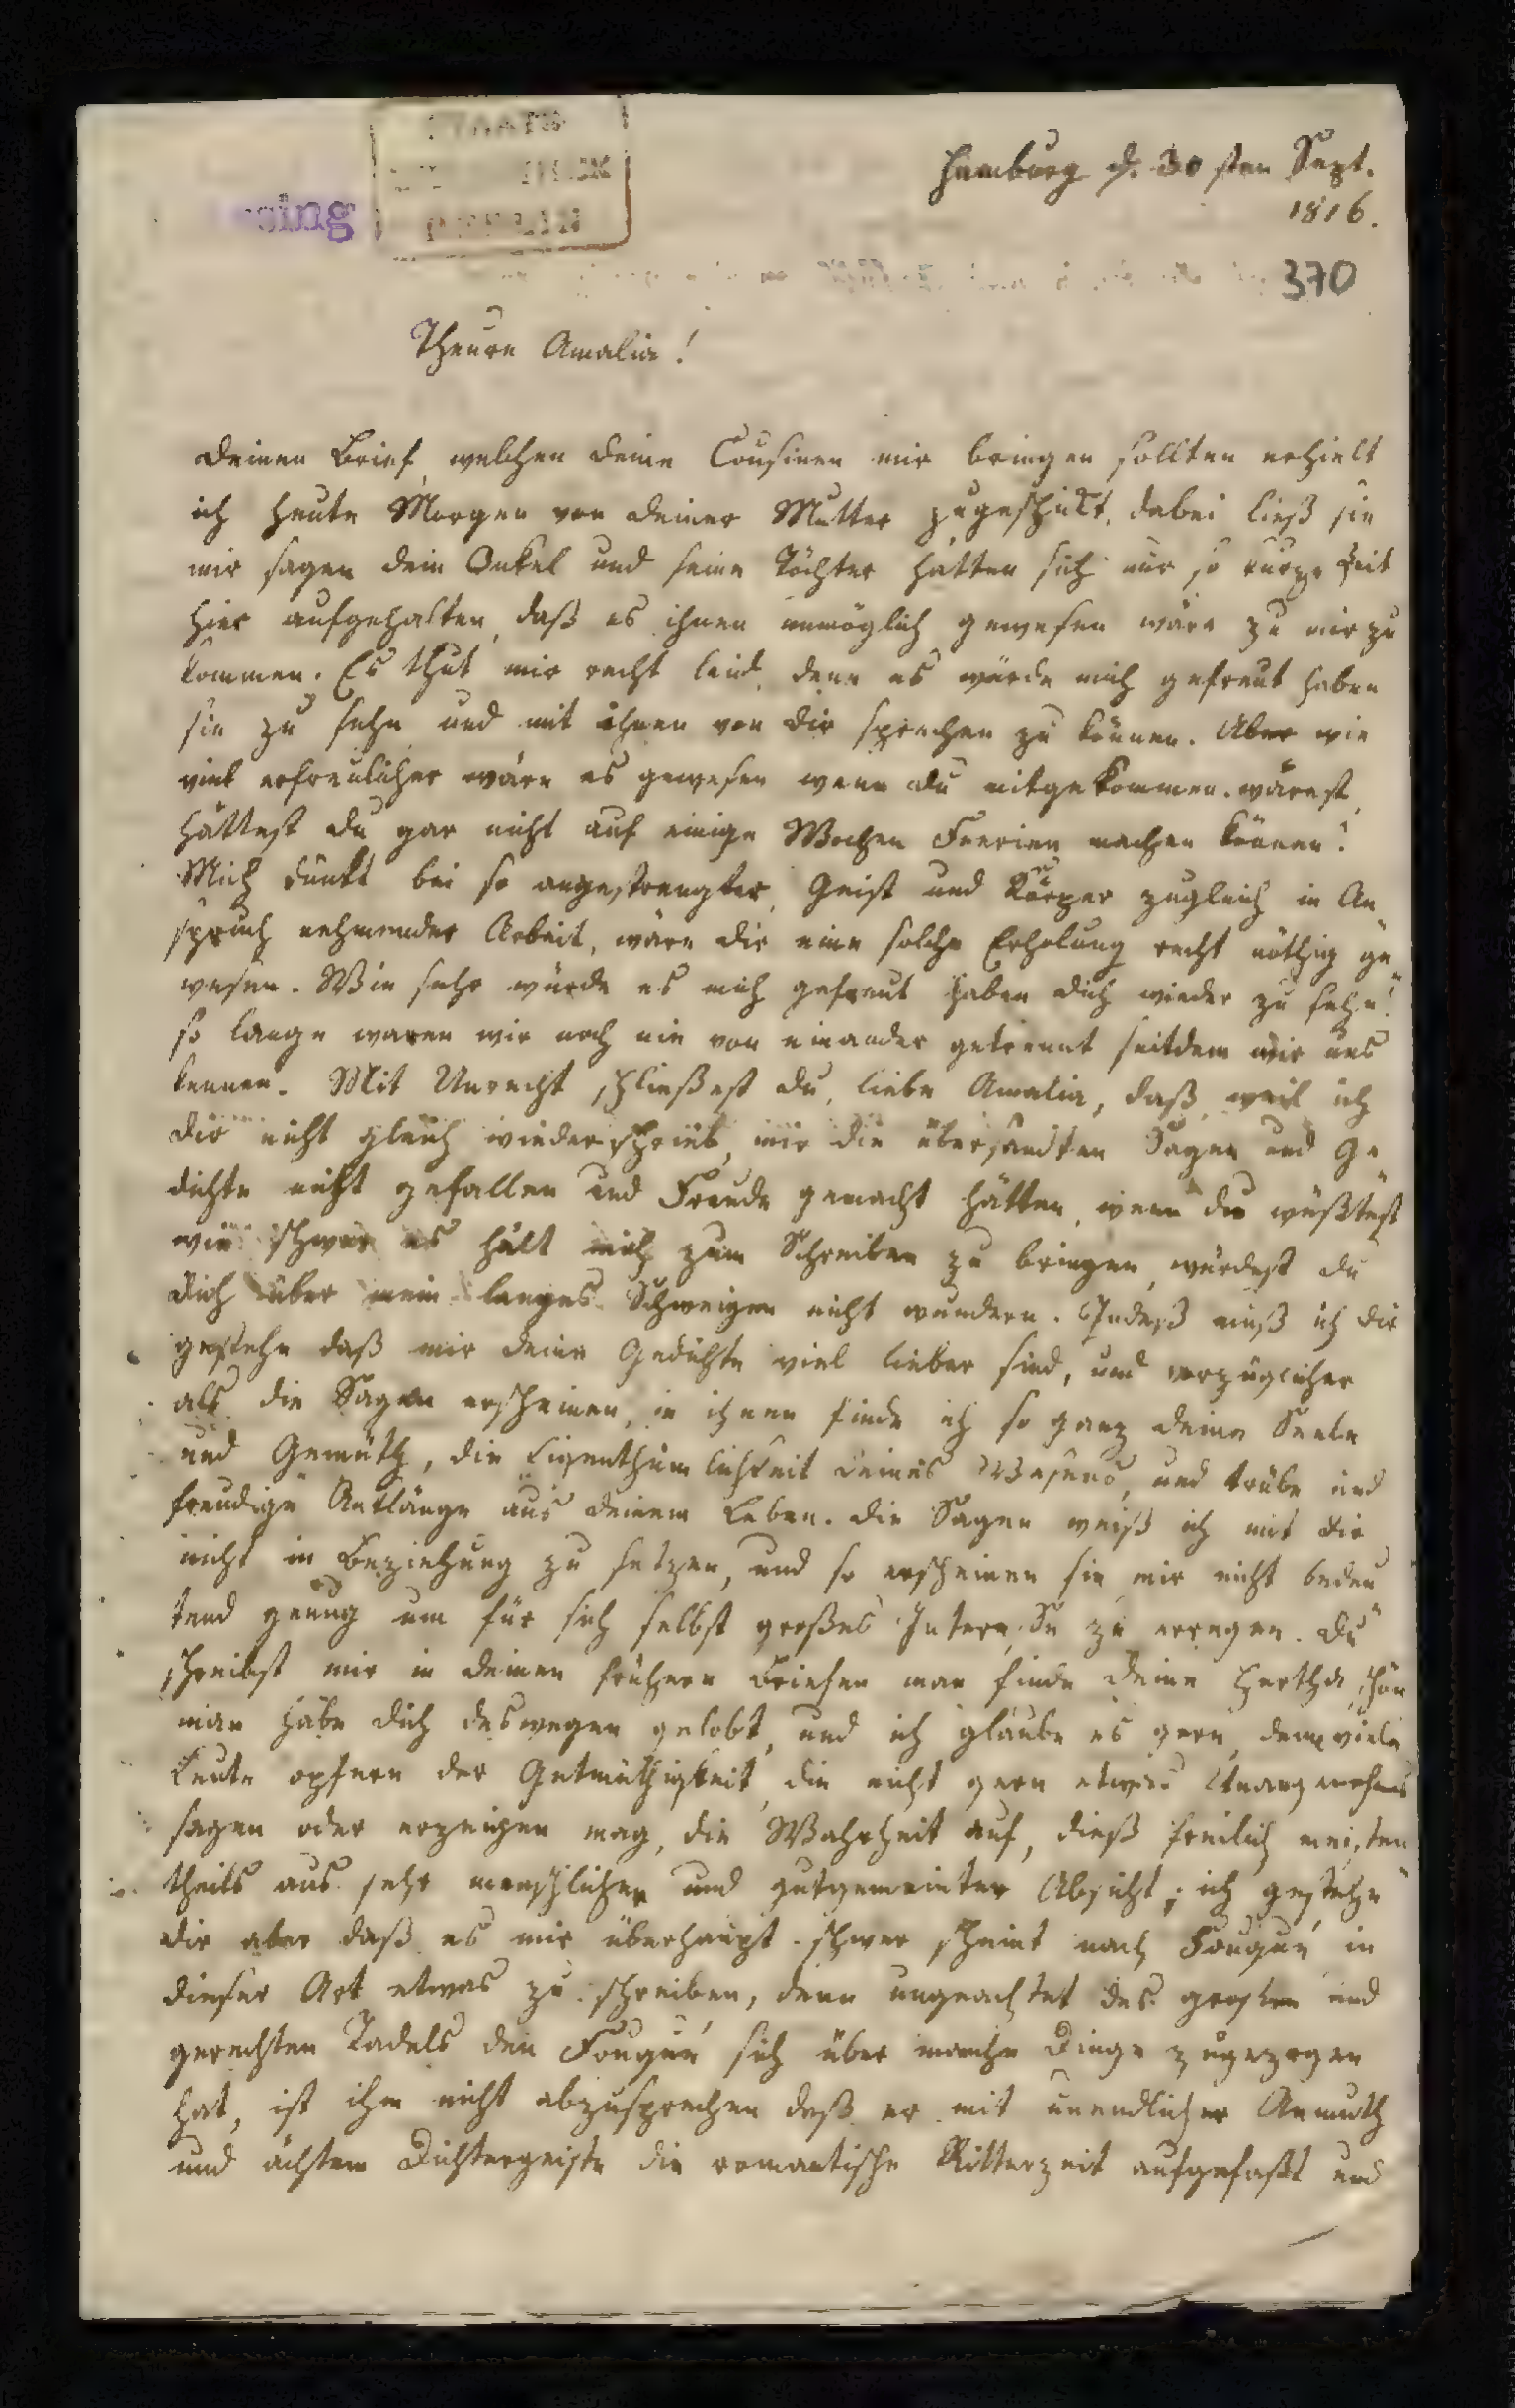 Hamburg d. 30 sten Sept.
1816.
sing
370
Theure Amalia!
Deinen Brief, welchen deine Cousinen mir bringen sollten erhielt
ich heute Morgen von deiner Mutter zugeschikt, dabei ließ sie
mir sagen dein Onkel und seine Töchter hätten sich nur so kurze Zeit
hier aufgehalten, daß es ihnen unmöglich gewesen wäre zu mir zu
kommen. Es thut mir recht leid, denn es würde mich gefreut haben
sie zu sehn und mit ihnen von dir sprechen zu können. Aber wie
viel erfreulicher wäre es gewesen wenn du mitgekommen wärest,
hättest du gar nicht auf einige Wochen Feerien machen können?
Mich dünkt bei so angestrengter, Geist und Körper zugleich in An-
spruch nehmender Arbeit, wäre dir eine solche Erholung recht nöthig ge-
wesen. Wie sehr würde es mich gefreut haben dich wieder zu sehn!
so lange waren wir noch nie von einander getrennt seitdem wir uns
kennen. Mit Unrecht schließest du, liebe Amalia, daß, weil ich
dir nicht gleich wiederschrieb, mir die übersandten Sagen und Ge-
dichte nicht gefallen und Freude gemacht hätten, wenn du wüßtest
wie schwer es hält mich zum Schreiben zu bringen, würdest du
dich über mein langes Schweigen nicht wundern. Indeß muß ich dir
gestehn daß mir deine Gedichte viel lieber sind, und vorzüglicher
als die Sagen erscheinen, in ihnen finde ich so ganz deine Seele
und Gemüth, die Eigenthümlichkeit deines Wesens, und trübe und
freudige Anklänge aus deinem Leben. Die Sagen weiß ich mit dir
nicht in Beziehung zu setzen, und so erscheinen sie mir nicht bedeu-
tend genug um für sich selbst großes Interesse zu erregen. Du
schreibst mir in deinen frühern Briefen man finde deine Hertha schön
man habe dich deswegen gelobt, und ich glaube es gern, denn viele
Leute opfern der Gutmüthigkeit, die nicht gern etwas Unangenehmes
sagen oder erzeigen mag, die Wahrheit auf, dieß freilich meisten
theils aus sehr menschlicher und gutgemeinter Absicht; ich gestehe
dir aber daß es mir überhaupt schwer scheint nach Fouqué in
dieser Art etwas zu schreiben, denn ungeachtet des großen und
gerechten Tadels den Fouqué sich über manche Dinge zugezogen
hat, ist ihm nicht abzusprechen daß er mit unendlicher Anmuth
und ächtem Dichtergeiste die romantische Ritterzeit aufgefaßt und